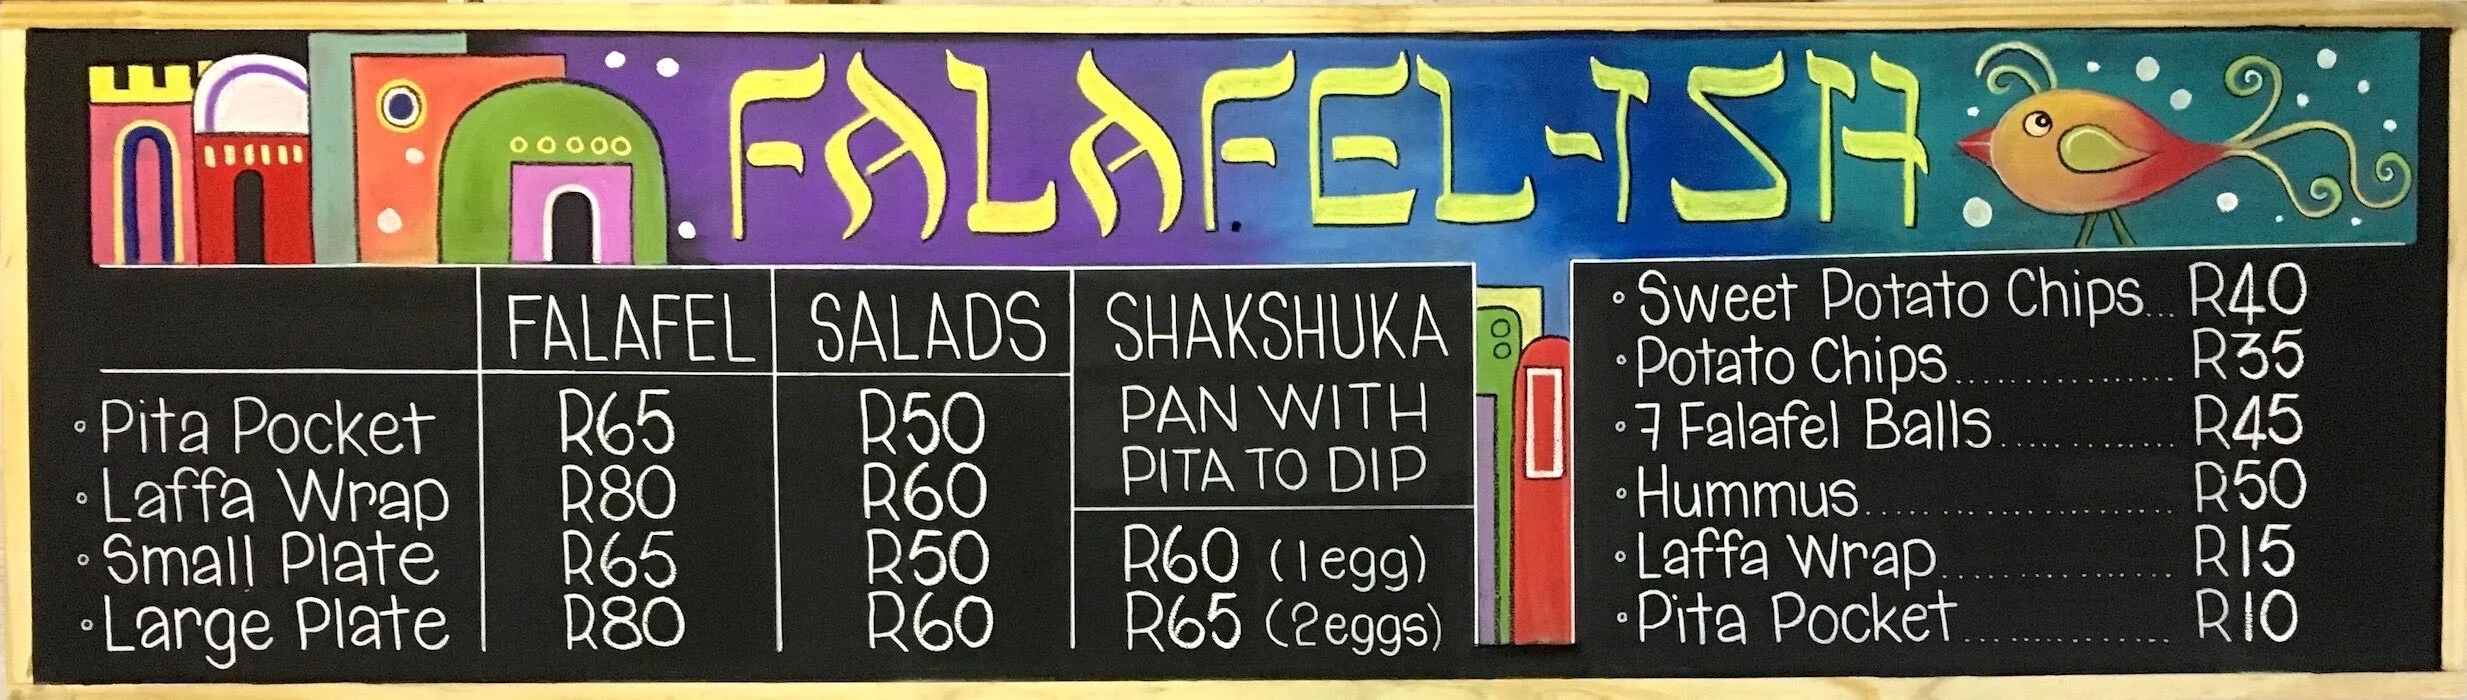 FALAFEL-ISH
FALAFEL SALADS
· Pita Pocket R65 R50
· Laffa Wrap R80 R60
· Small Plate R65 R50
· Large Plate R80 R60
SHAKSHUKA
PAN WITH
PITA TO DIP
R60 (1egg)
R65 (2eggs)
· Sweet Potato Chips... R40
· Potato Chips................ R35
· 7 Falafel Balls............. R45
· Hummus...................... R50
· Laffa Wrap................. R15
· Pita Pocket................ R10